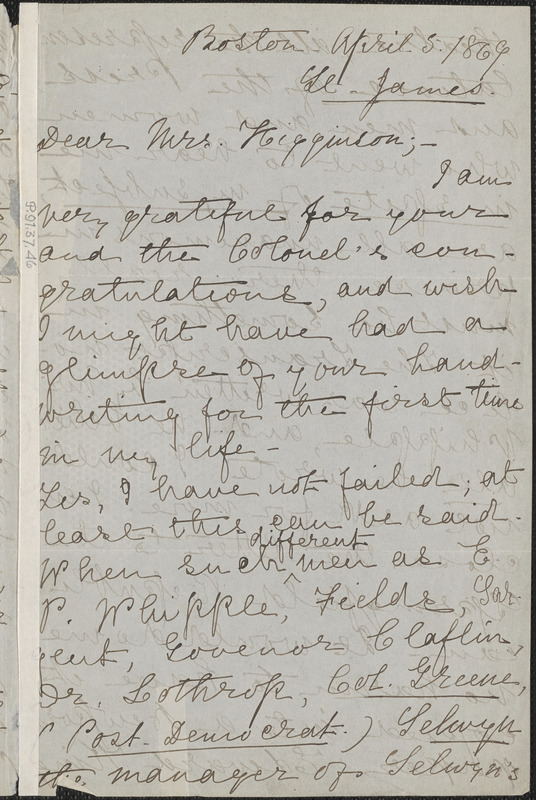 Boston April 5. 1869
St. James.
Dear Mrs. Higginson;-
I am
very grateful for your
and the Colonel's con-
gratulations, and wish
I might have had a
glimpse of your hand-
writing for the first time
in my life -
Yes, I have not failed; at
least this can be said.
different
When such ^ men as E.
P. Whipple, Fields, Sar-
gent, Govenor Claflin,
Dr. Lothrop, Col. Greene,
( Post. Democrat.) Selwyn
the manager of Selwyn's